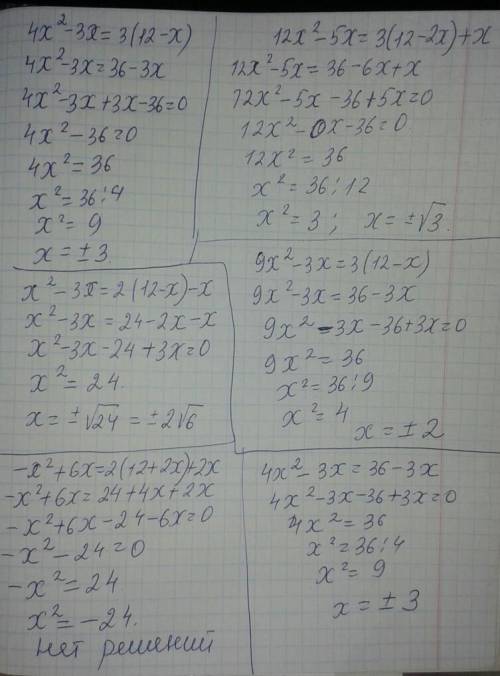 4x²-3x=3(12-x)
4x²-3x=36-3x
4x²-3x+3x-36=0
4x²-36=0
4x²=36
x²=36:4
x²=9
x=±3
12x²-5x=3(12-2x)+x
12x²-5x=36-6x+x
12x²-5x-36+5x=0
12x²-0x-36=0
12x²=36
x²=36:12
x²=3; x=±√3.
x²-3x=2(12-x)-x
x²-3x=24-2x-x
x²-3x-24+3x=0
x²=24.
x=±√24=±2√6
9x²-3x=3(12-x)
9x²-3x=36-3x
9x²-3x-36+3x=0
9x²=36
x²=36:9
x²=4
x=±2
-x²+6x=2(12+2x)+2x
-x²+6x=24+4x+2x
-x²+6x-24-6x=0
-x²-24=0
-x²=24
x²=-24.
Нет решений
4x²-3x=36-3x
4x²-3x-36+3x=0
4x²=36
x²=36:4
x²=9
x=±3